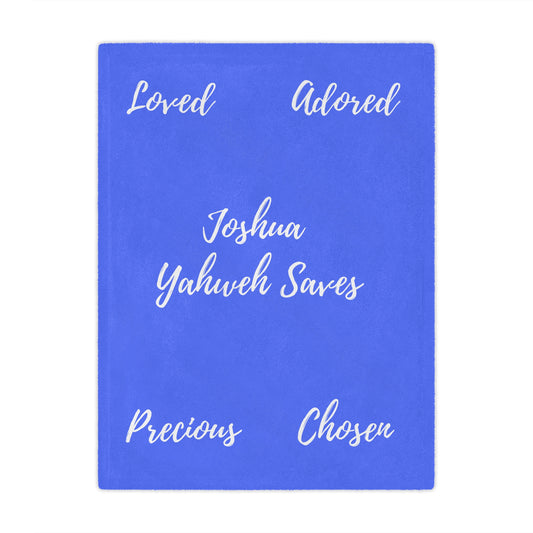 Loved Adored
Joshua
Yahweh Saves
Precious Chosen